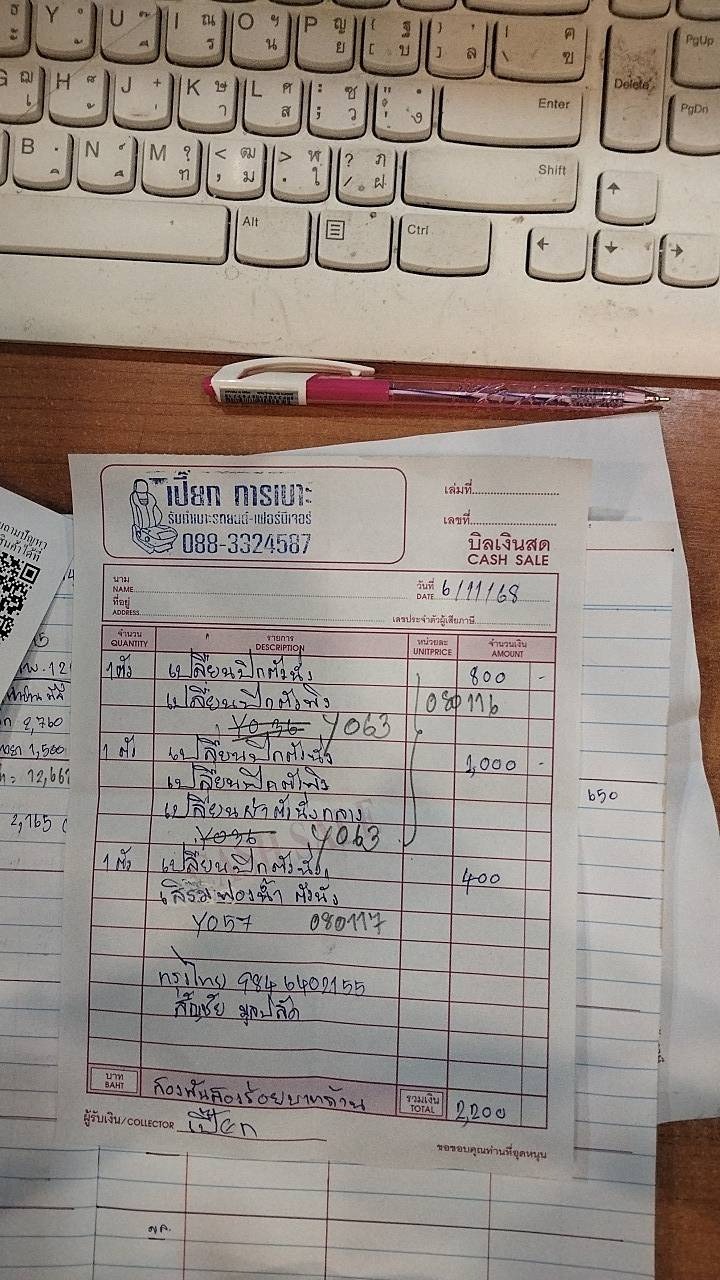 Y U ณ I ร O ฯ น P ญ ย { ฐ [ บ } , ] ล | ฅ \ ฃ PgUp
G ฌ เ H ้ J ่ K ษ า L ศ ส : ซ ; ว " ' ง Enter Delete PgDn
B N M ? ท < ฒ , ม > ฬ . ใ ? ฦ / ฝ Shift
Alt Ctrl
เปี๊ยก การเบาะ
รับทำเบาะรถยนต์-เฟอร์นิเจอร์
088-3324587
เล่มที่
เลขที่
บิลเงินสด
CASH SALE
นาม
NAME
วันที่ 6/11/68
DATE
ที่อยู่
ADDRESS
เลขประจำตัวผู้เสียภาษี
จำนวน รายการ หน่วยละ จำนวนเงิน
QUANTITY DESCRIPTION UNITPRICE AMOUNT
1 ตัว เปลี่ยนปีกตัวนั่ง 800 -
เปลี่ยนปีกตัวพิง 080116
Y036 Y063
1 ตัว เปลี่ยนปีกตัวนั่ง 1,000 -
เปลี่ยนปีกตัวพิง
เปลี่ยนผ้าตัวนั่งกลาง
Y036 Y063
1 ตัว เปลี่ยนปีกตัวนั่ง 400
เสริมฟองน้ำ ตัวนั่ง
Y057 080117
กรุงไทย 9846402155
สัญชัย มูลปลัด
บาท สองพันสองร้อยบาทถ้วน รวมเงิน 2,200
BAHT TOTAL
ผู้รับเงิน/COLLECTOR เปี๊ยก
ขอขอบคุณท่านที่อุดหนุน
2,760
1,500
= 12,667
2,165
650